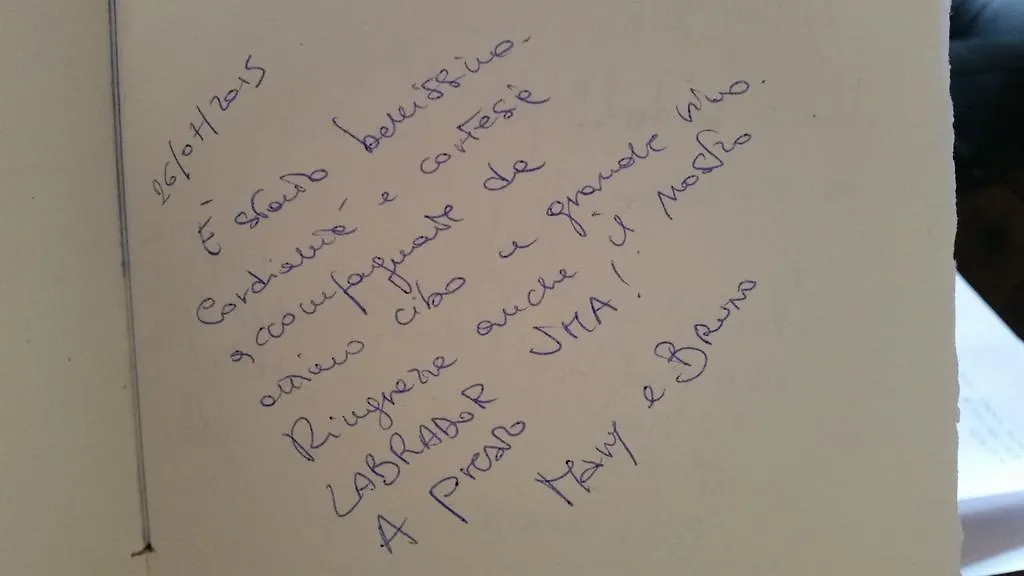 26/07/2015
È stato bellissimo.
Cordialità e cortesie
accompagnate da
ottimo cibo e grande vino.
Ringrazia anche il nostro
LABRADOR UMA!
A presto
Mary e Bruno